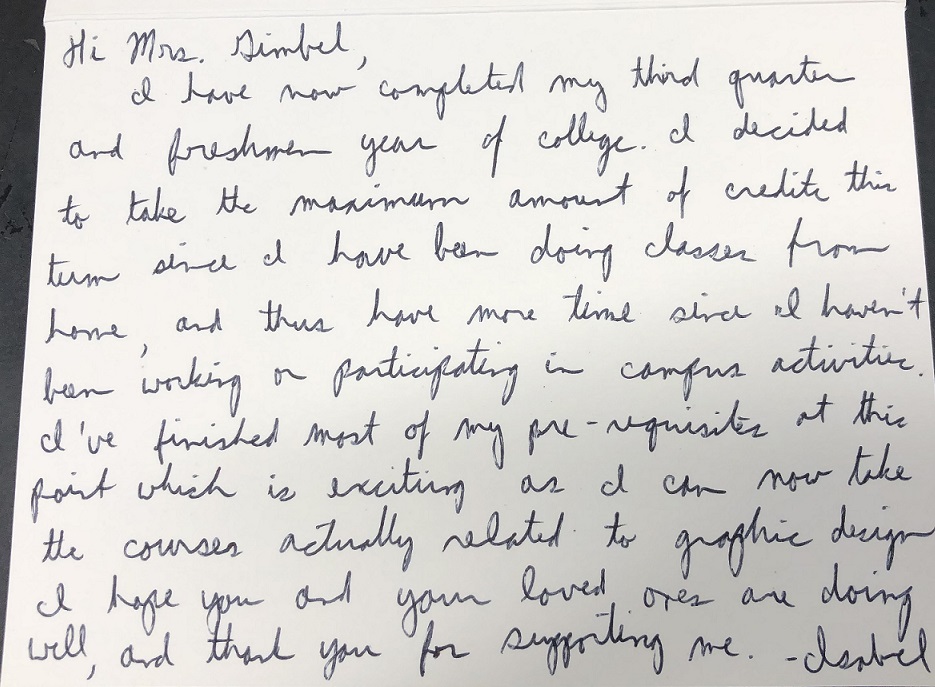 Hi Mrs. Gimbel,
I have now completed my third quarter
and freshmen year of college. I decided
to take the maximum amount of credits this
term since I have been doing classes from
home, and thus have more time since I haven't
been working or participating in campus activities.
I've finished most of my pre-requisites at this
point which is exciting as I can now take
the courses actually related to graphic design
I hope you and your loved ones are doing
well, and thank you for supporting me. -Isabel